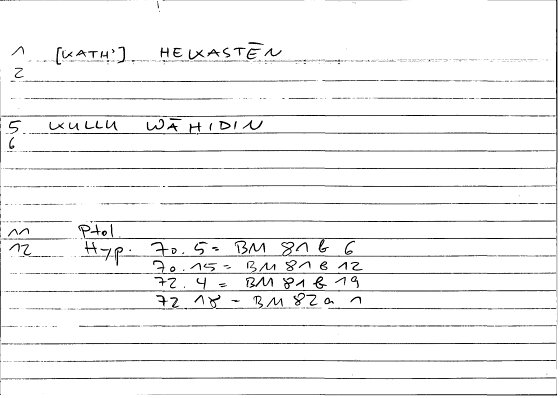 1 [KATH'] HEKASTĒN
2
5 KULLU WĀHIDIN
6
11 Ptol
12 Hyp. 70.5 = BM 81 b 6
70.15 = BM 81 b 12
72.4 = BM 81 b 19
72.18 = BM 82 a 1